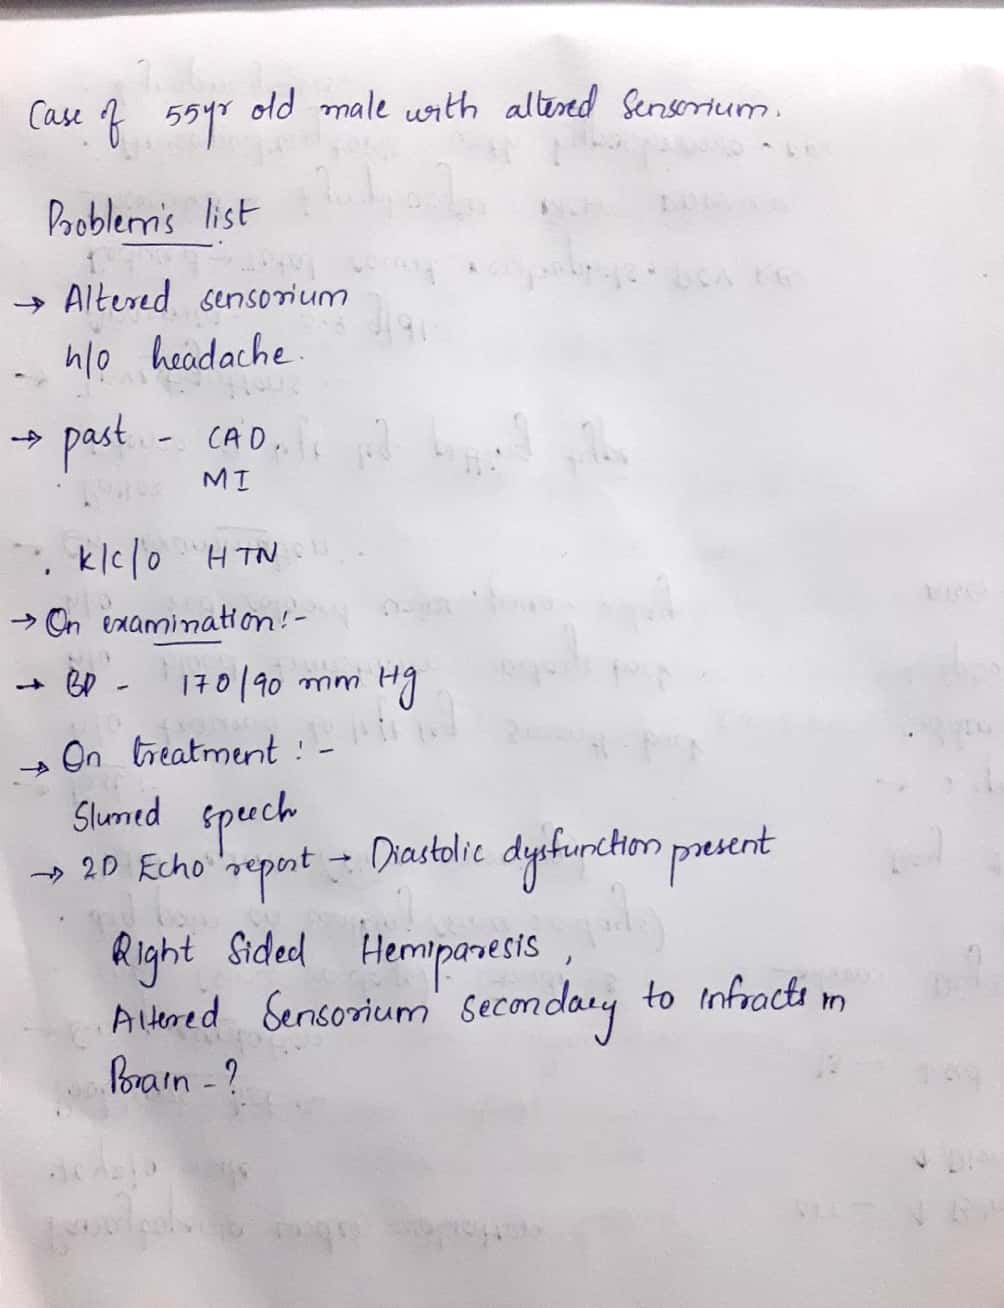 Case of 55yr old male with altered Sensorium.
Problem's list
→ Altered sensorium
- h/o headache.
→ past - CAD.
MI
. k/c/o HTN
→ On examination:-
→ BP - 170/90 mm Hg
→ On treatment : -
Slurred speech
→ 2D Echo report → Diastolic dysfunction present
Right Sided Hemiparesis,
Altered Sensorium secondary to infracts in
Brain - ?